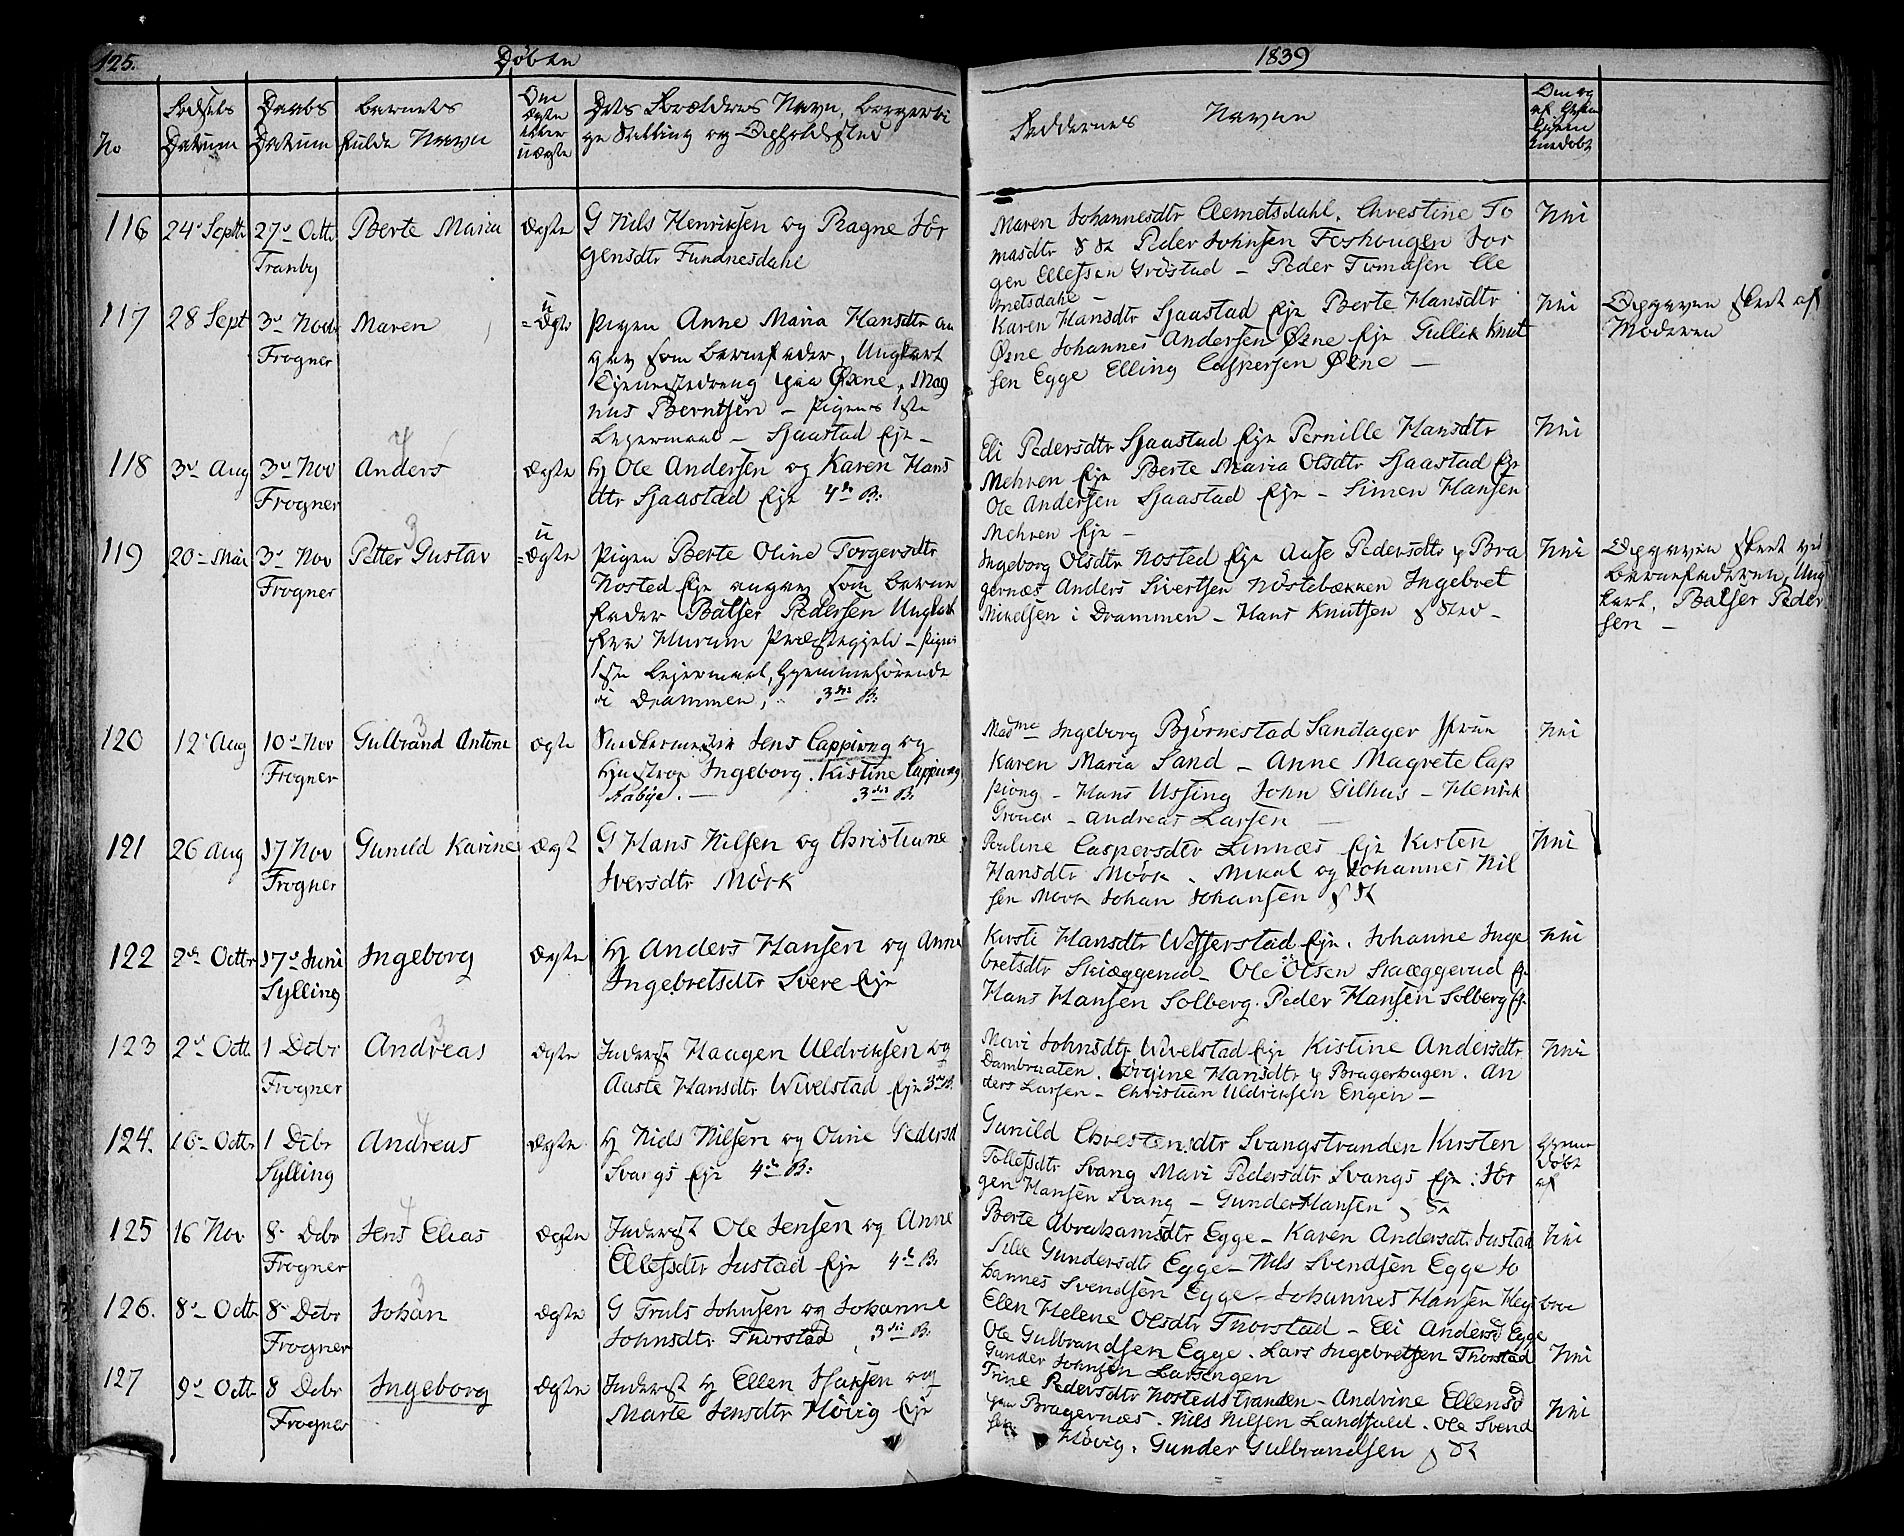 125. Døbte 1839
No
Fødsels Datum
Daabs Datum
Barnets fulde Navn
Om ægte eller uægte
Dets Forældres Navn, borgerli
ge Stilling og Opholdssted
Faddernes Navne
116 24de Septr 27de Octr Tranby Berte Maria Ægte
G Nils Henriksen og Ragne Jör
gensdtr Fundnesdahl
Maren Johannesdtr Clemetsdahl. Chrestine To
masdtr Peder Johnsen Foshougen Jör
gen Ellefsen Gröstad – Peder Tomasen Cle
metsdahl –
Nei
117 28 Sept 3de Novbr Frogner Maren uÆgte
Pigen Anne Maria Hansdtr an
gav som Barnefader, Ungkarl
Tjenestedreng paa Øxne, Mag
nus Berntsen – Pigens 1ste
Leiermaal – Sjaastad Eje –
Karen Hansdtr Sjaastad Eje Berte Hansdtr
Øxne Johannes Andersen Øxne Eje Gullik Knut
sen Egge Elling Caspersen Øxne –
Nei
Opgaven skeet af
Moderen
118 3de Aug 3de Nov Frogner Anders 4 Ægte
H Ole Andersen og Karen Hans
dtr Sjaastad Eje 4de B:
Eli Pedersdtr Sjaastad Eje Pernille Hansdtr
Mehren Eje Berte Maria Olsdtr Sjaastad Eje
Ole Andersen Sjaastad Eje – Simen Hansen
Mehren Eje –
Nei
119 20– Mai 3de Nov Frogner Petter Gustav 3 uÆgte
Pigen Berte Oline Torgersdtr
Nosted Eje angav som Barne
fader Balser Pedersen Ungkarl
fra Hurum Præstegjeld – Pigens
1ste Leiermaal, hjemmehørende
i Drammen, 3die B:
Ingeborg Olsdtr Nosted Eje Aase Pedersdtr p Bra
gernæs Anders Sivertsen Nöstebækken Ingebret
Mikelsen i Drammen – Hans Knutsen
Nei
Opgaven skeet ved
Barnefaderen, Ung
karl. Balser Peder
sen –
120 12te Aug 10de Nov Frogner Gulbrand Antone 3 Ægte
Snedkermester Jens Cappjong og
Hustroe Ingeborg. Kistine Cappjong
Aabye. – 3die B:
Madme Ingeborg Björnestad Sandager Jfrue
Karen Maria Sand – Anne Magrete Cap
pjong – Hans Ussing John Gilhus – Henrik
Groner – Andreas Larsen –
Nei
121 26 Aug 17 Nov Frogner Gunild Karine Ægt
G Hans Nilsen og Christiane
Iversdtr Mörk
Pauline Caspersdtr Linnæs Eje Kisten
Hansdtr Mörk. Mikal og Johannes Nil
sen Mörk Johan Johansen
Nei
122 2den Octbr 17de Juni Sylling Ingeborg Ægte
H Anders Hansen og Anne
Ingebretsdtr Svere Eje
Kirsti Hansdtr Wefferstad Eje. Johanne Inge
bretsdtr Skiæggerud – Ole Olsen Skiæggerud Eje
Hans Hansen Solberg. Peder Hansen Solberg Ej
Nei
123 2de Octb 1 Dcbr Frogner Andreas 3 Ægte
Inderst Haagen Uldriksen og
Aaste Hansdtr Wivelstad Eje 3die B
Mari Johnsdtr Wivelstad Eje Kistine Andersdtr
Dambraaten. Jörgine Hansdtr p Bragerhagen. An
ders Larsen – Christian Uldriksen Engen –
Nei
124. 16– Octbr 1 Dcbr Sylling Andreas 4 Ægte
H Niels Nilsen og Oline Pedersd
Svangs Eje 4de B:
Gunild Chrestensdtr Svangstranden Kirsten
Tollefsdtr Svang Mari Pedersdtr Svangs Eje: Jör
gen Hansen Svang – Gunder Hansen
Hjemmedöbt af
125 16 Nov 8– Dcbr Frogner Jens Elias 4 Ægte
Inderst Ole Jensen og Anne
Ellefsdtr Justad Eje 4de B:
Berte Abrahamsdtr Egge – Karen Andersdtr Justad
Sille Gundersdtr Egge – Nils Svendsen Egge Jo
hannes Svendsen Egge – Johannes Hansen
Nei
126. 8de Octbr 8– Dcbr Frogner Johan 3 Ægte
G Truls Johnsen og Johanne
Johnsdtr Thorstad, 3die B:
Elen Helene Olsdtr Thorstad – Eli Andersd Egge
Ole Gulbrandsen Egge. Lars Ingebretsen Thorstad
Gunder Johnsen Larsengen
Nei
127 9de Octb 8 Dcbr Frogner Ingeborg Ægte
Inderst H Ellen Isaksen og
Marte Jensdtr Hövig Eje
Trine Pedersdtr Nostedstranden – Andrine Ellensd
paa Bragernæs. Nils Nilsen Landfald. Ole Svend
sen Hövig. Gunder Gulbrandsen
Nei